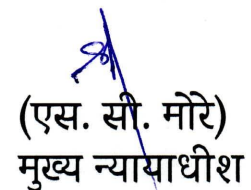 (एस. सी. मोरे)
मुख्य न्यायाधीश